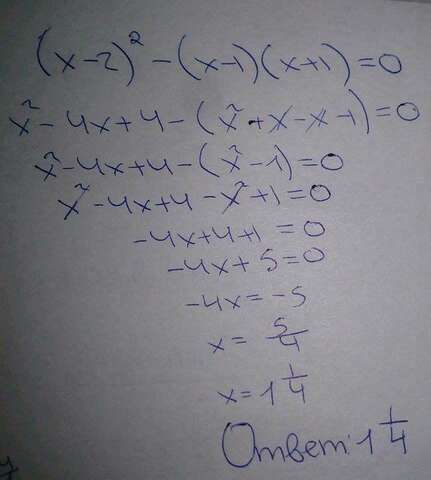 (x-2)² - (x-1)(x+1)=0
x²-4x+4-(x²+x-x-1)=0
x²-4x+4-(x²-1)=0
x²-4x+4-x²+1=0
-4x+4+1=0
-4x+5=0
-4x=-5
x= 5/4
x=1 1/4
Ответ: 1 1/4